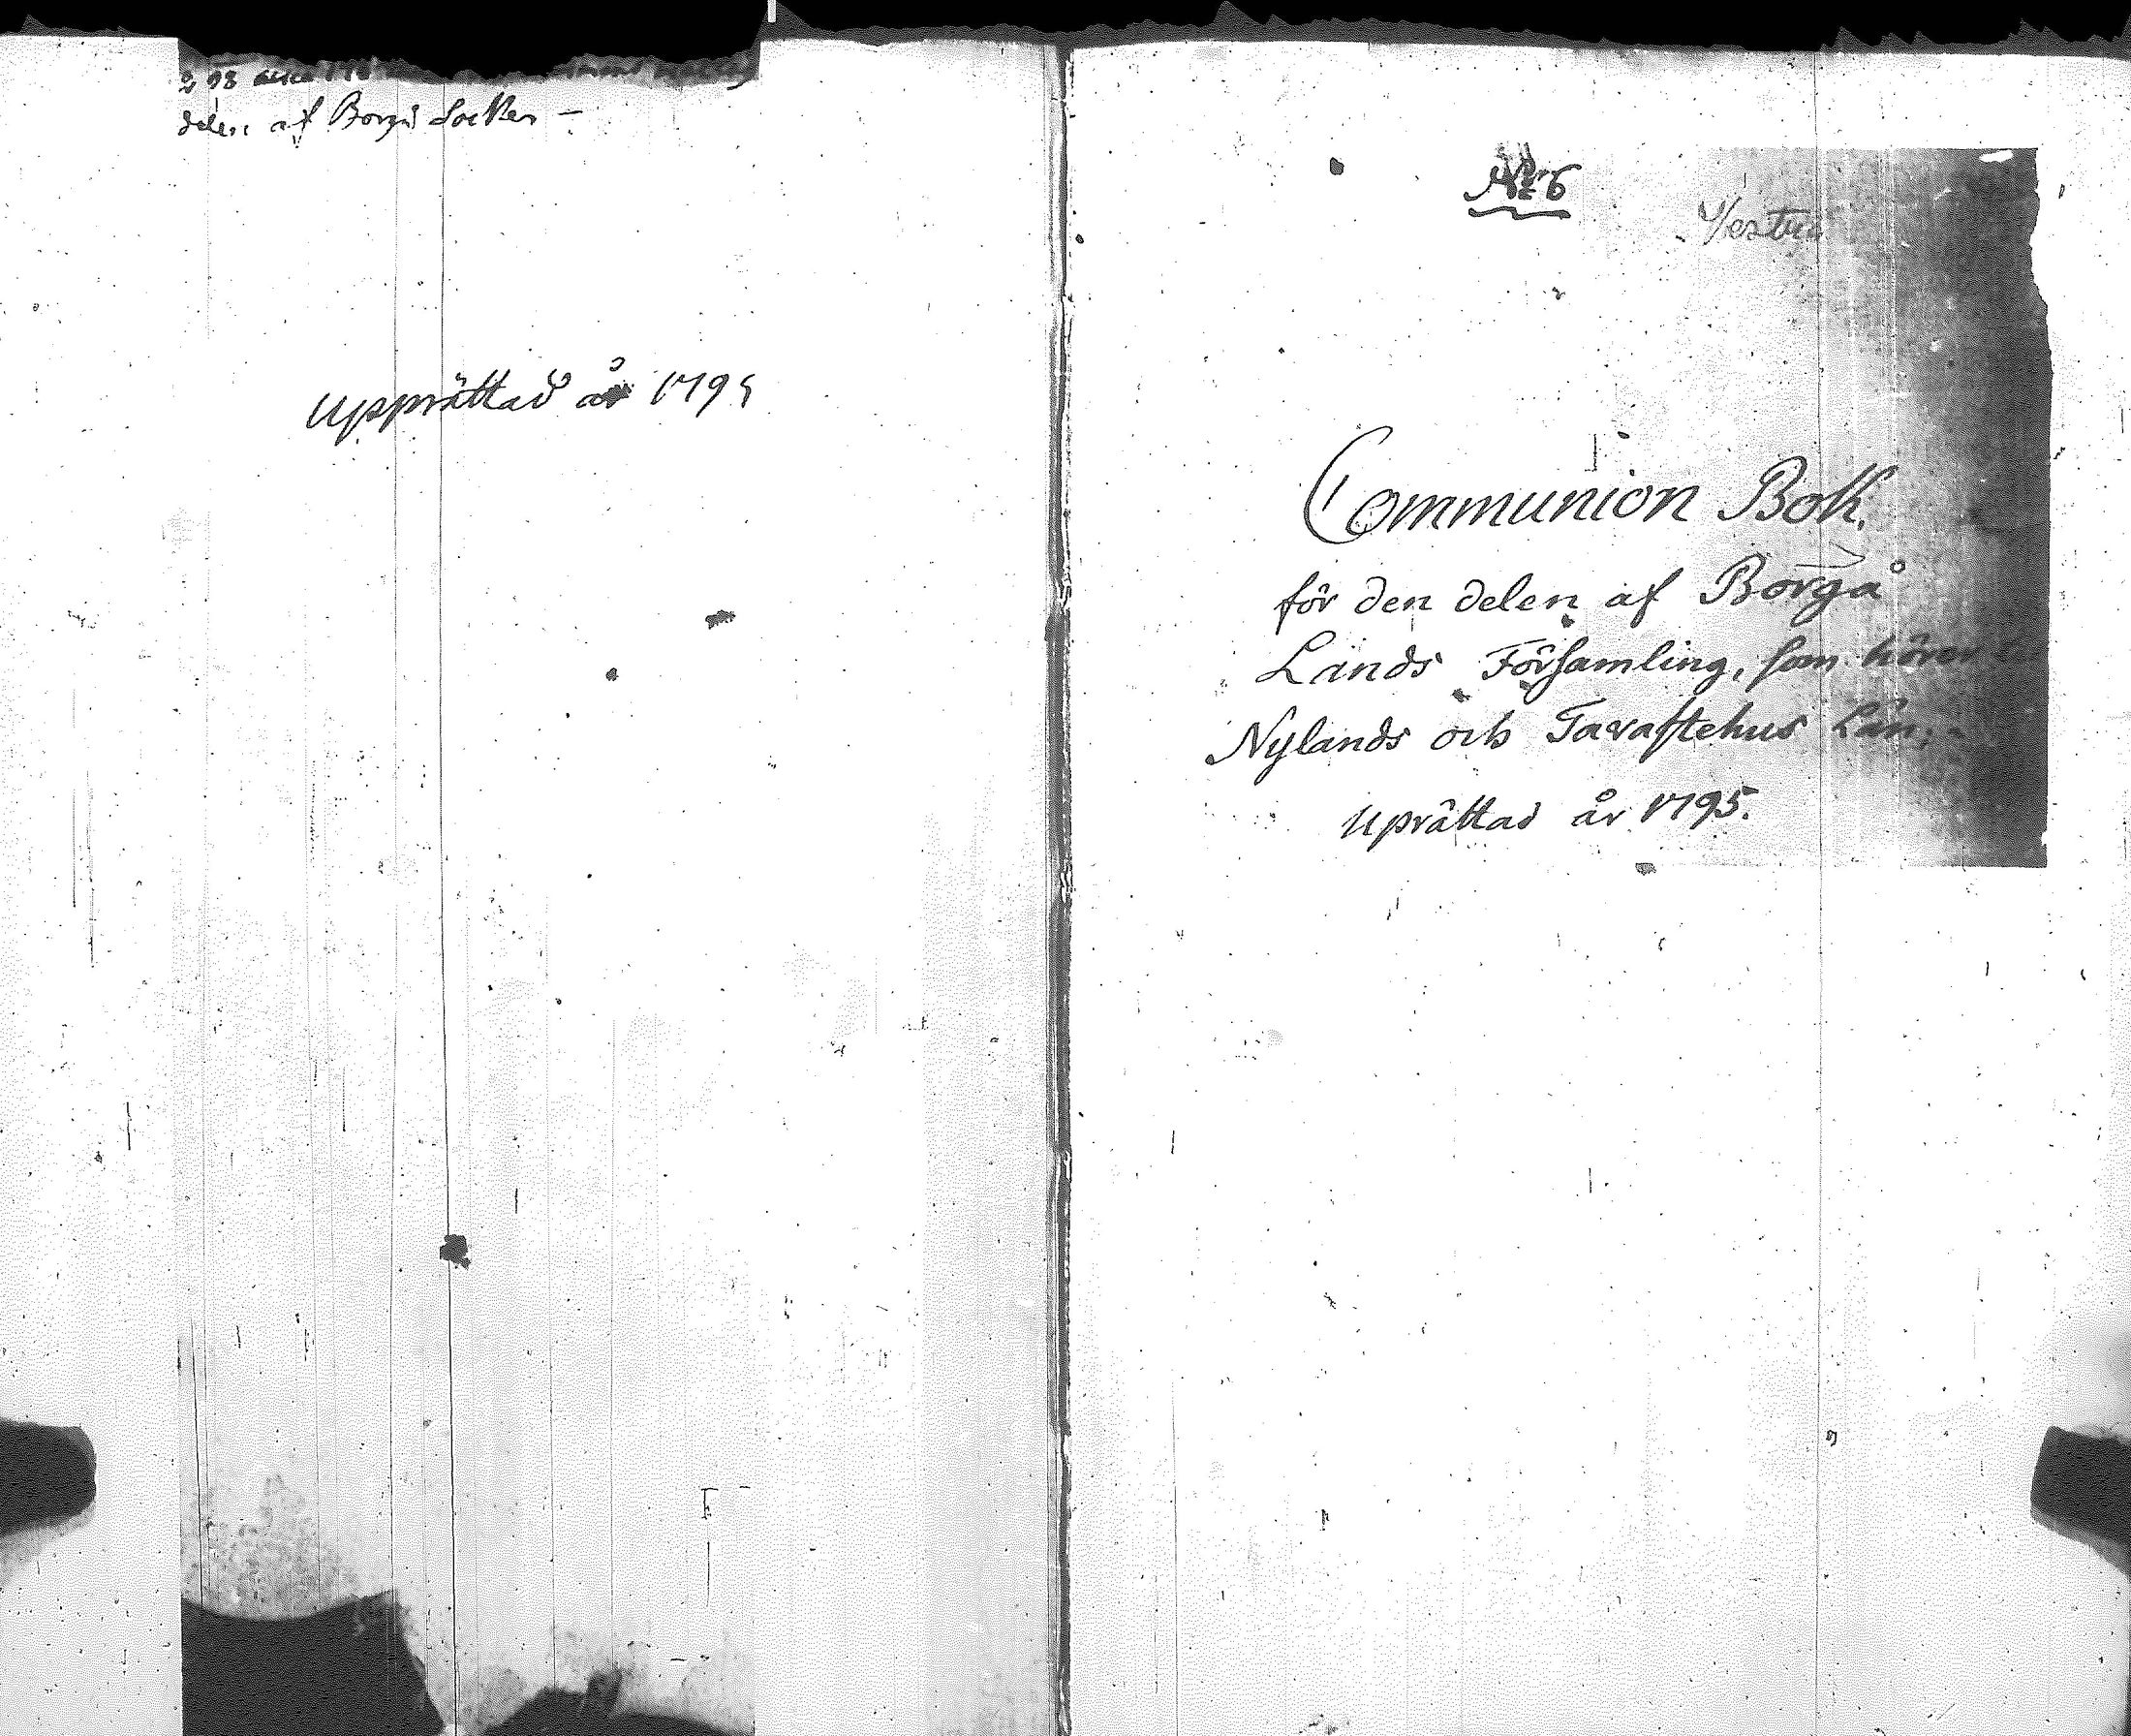 delen af Borgå Socken –
Upprättad år 1795
No 6
Vestra
Communion Bok.
för den delen af Borgå
Lands Församling, som hörer till
Nylands och Tavastehus Län,
Uprättad år 1795.